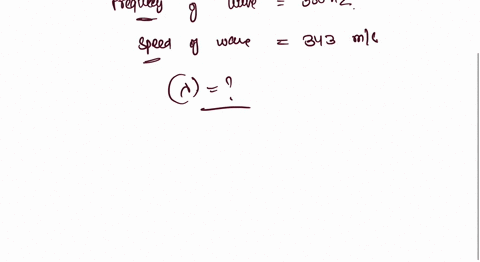 Frequency of wave = 300 Hz.
Speed of wave = 343 m/s
(λ) = ?